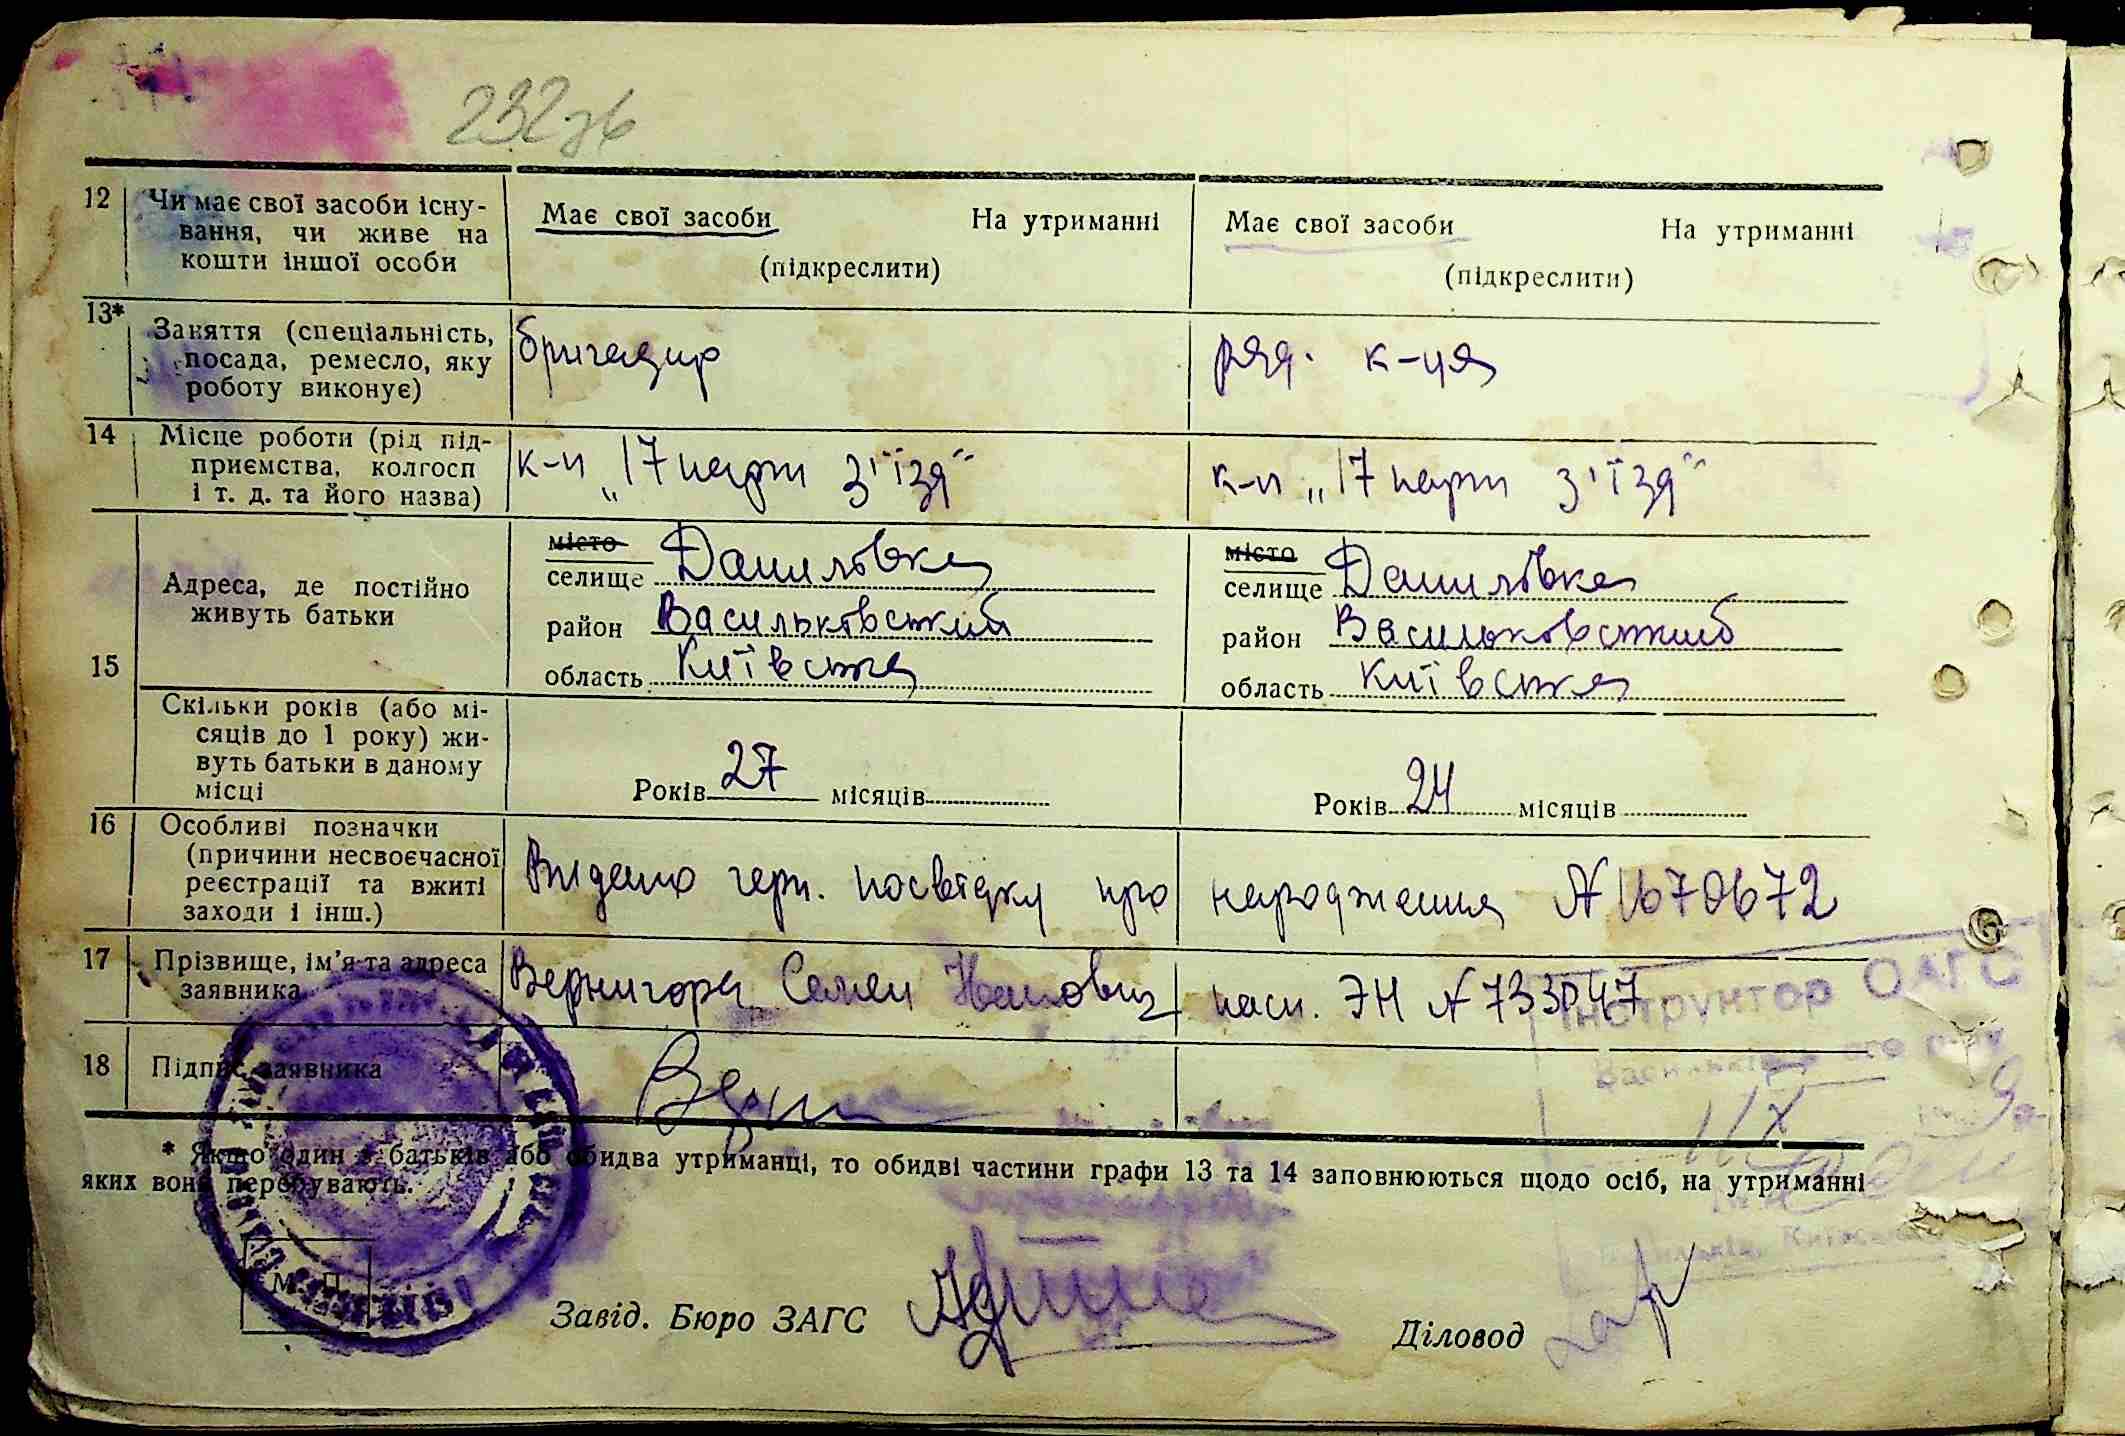 232зв
12 Чи має свої засоби існу-
вання, чи живе на
кошти іншої особи
Має свої засоби На утриманні
(підкреслити)
Має свої засоби На утриманні
(підкреслити)
13* Заняття (спеціальність,
посада, ремесло, яку
роботу виконує)
бригадир
ряд. к-ця
14 Місце роботи (рід під-
приємства, колгосп
і т. д. та його назва)
к-п „17 парт з'їзд"
к-п „17 парт з'їзд"
15 Адреса, де постійно
живуть батьки
місто
селище Данилівка
район Васильківський
область Київська
місто
селище Данилівка
район Васильковський
область Київська
Скільки років (або мі-
сяців до 1 року) жи-
вуть батьки в даному
місці
Років 27 місяців
Років 24 місяців
16 Особливі позначки
(причини несвоєчасної
реєстрації та вжиті
заходи і інш.)
Видано герп. посвідку про народження № 1670672
17 Прізвище, ім'я та адреса
заявника
Вернигора Семен Іванович пасп. ЭН № 733047
18 Підпис заявника
* Якщо один з батьків або обидва утриманці, то обидві частини графи 13 та 14 заповнюються щодо осіб, на утриманні
яких вони перебувають.
Інструктор ОАГС
М. П.
Завід. Бюро ЗАГС
Діловод